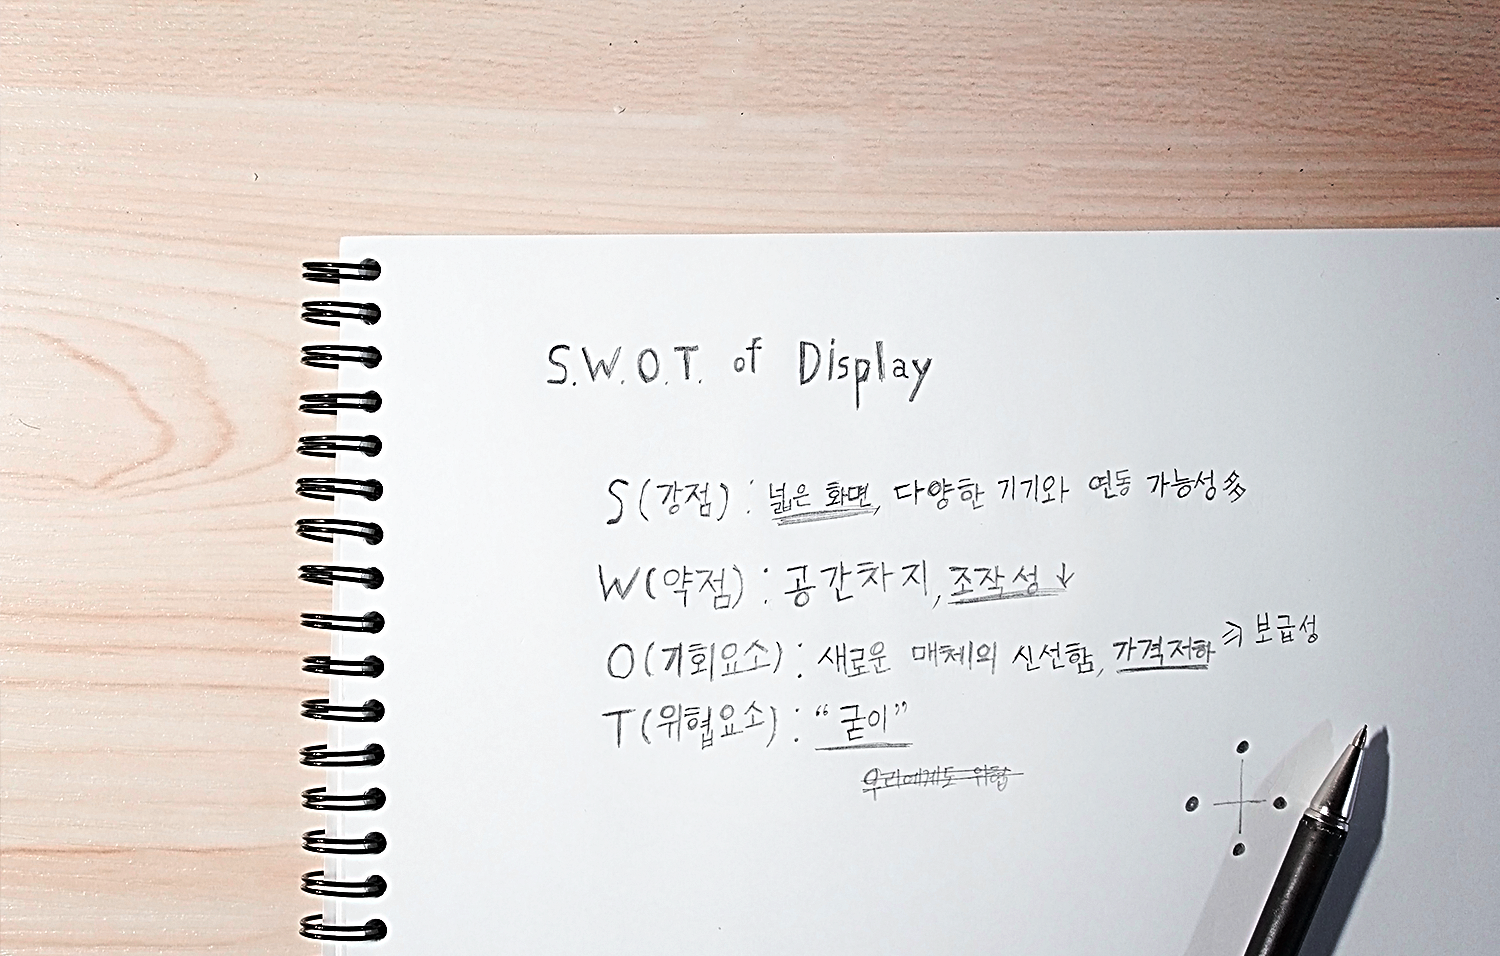 S.W.O.T. of Display
S(강점) : 넓은 화면, 다양한 기기와 연동 가능성 多
W(약점) : 공간차지, 조작성 ↓
O(기회요소) : 새로운 매체의 신선함, 가격저하 ⇒ 보급성
T(위협요소) : “굳이”
우리에게도 위협